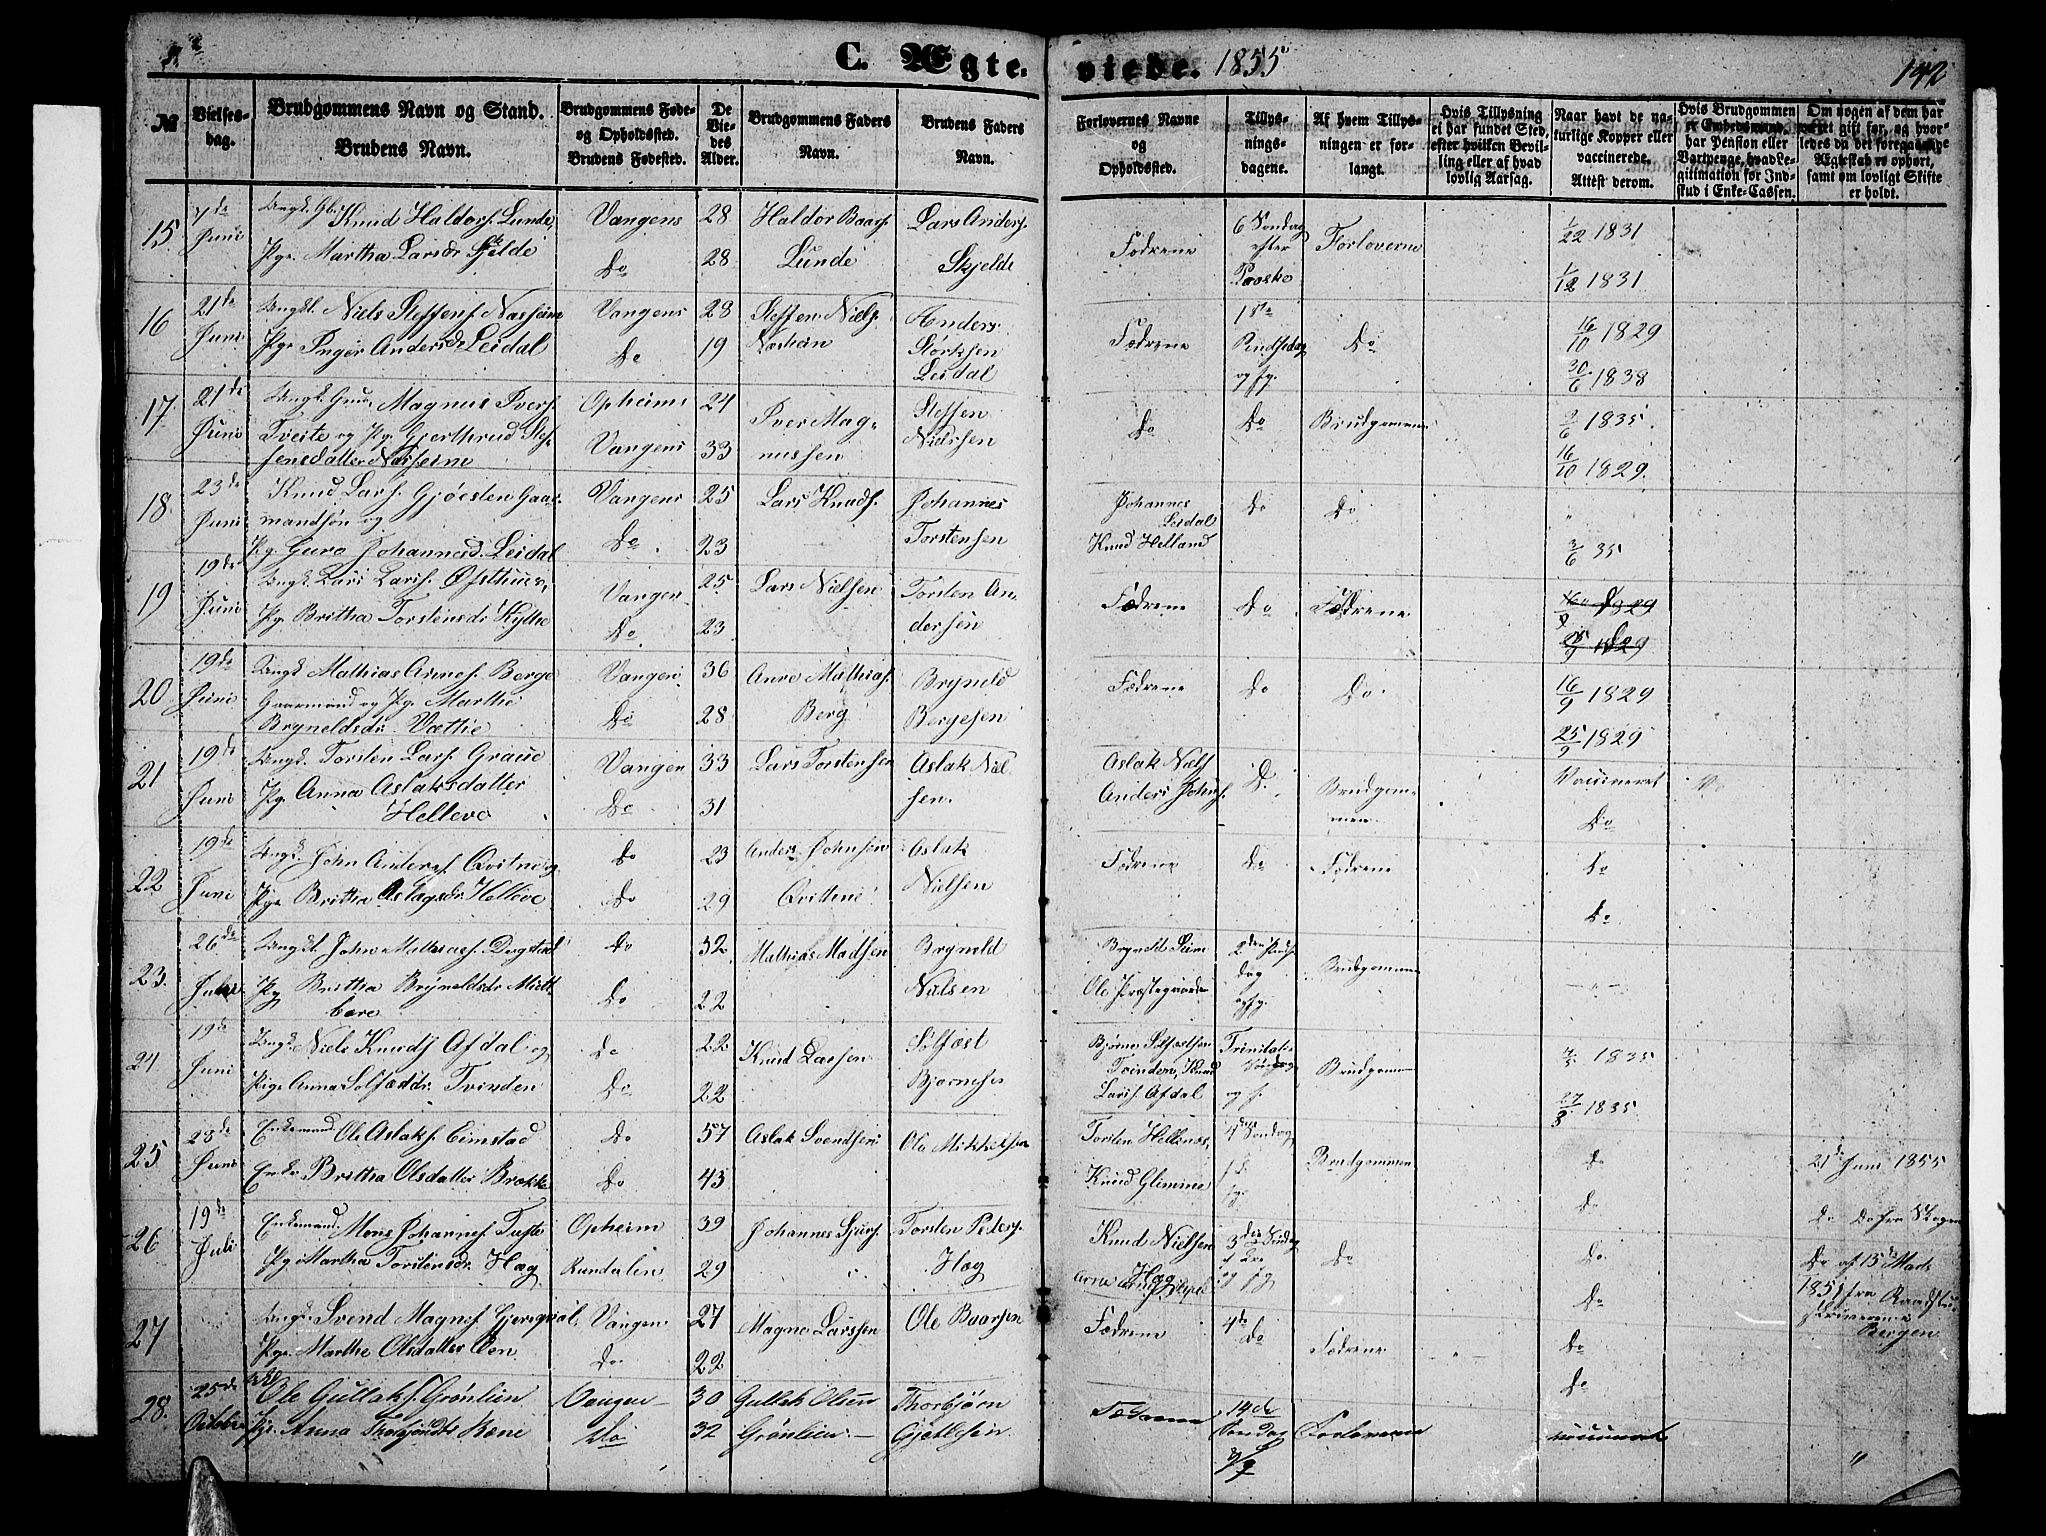 C. Ægte-
viede. 1855
142
№
Vielses-
dag.
Brudgommens Navn og Stand.
Brudens Navn.
Brudgommens Føde-
og Opholdssted.
Brudens Fødested.
De
Vie-
des
Alder.
Brudgommens Faders
Navn.
Brudens Faders
Navn.
Forlovernes Navne
og
Opholdssted.
Tillys-
nings-
dagene.
Af hvem Tillys-
ningen er for-
langt.
Hvis Tillysning
ei har fundet Sted,
efter hvilken Bevil-
ling eller af hvad
lovlig Aarsag.
Naar havt de na-
turlige Kopper eller
vaccinerede.
Attest derom.
Hvis Brudgommen
er Embedsmand,
har Pension eller
Vartpenge, hvad Le-
gitimation for Ind-
skud i Enke-Cassen.
Om nogen af dem har
været gift før, og hvor-
ledes da det foregaaende
Ægteskab er ophørt,
samt om lovligt Skifte
er holdt.
15. 7de Juni
Knud Haldors. Lunde,
Pge Martha Larsdr Skjelde
Vangens 28
Do 28
Haldor Baars.
Lunde
Lars Anders.
Skjelde
Fædrene
6 Søndag
efter
Paaske
Forloverne
1/22 1831
1/12 1831
16 21de Juni
Ungk. Niels Steffens. Nasheim
Pge Inger Andersdr Leidal
Vangens 28
Do 19
Steffen Niels.
Nasheim
Anders
Størksen
Leidal
Fædrene
1ste
Pindsedag
og fg.
Do
16/10 1829
30/6 1838
17. 21de Juni
Ungk. Magnus Ivers.
Tveite og Pg. Gjerthrud Stef-
fensdatter Nasheim
Opheims 24
Vangens 33
Iver Mag-
nussen
Steffen
Nielsen
Do
Do
Brudgommen
2/6 1835.
16/10 1829.
18. 23de Juni
Knud Lars. Gjøesten Gaar-
mandsøn og
Pg. Guro Johannesd. Leidal
Vangens 25
Do 23
Lars Knuds.
Johannes
Torstensen
Johannes
Leidal
Knud Helland
Do
Do
"
3/6 35
19 19de Juni
Ungk. Lars Lars. Østhun,
Pge Britha Torstensdr Kythe
Vangen 25
Do 23
Lars Nielsen
Torsten An-
dersen
Fædrene
Do
Fædrene
20 19de Juni
Ungk Mathias Arnes. Berge
Gaarmand og Pg. Marthe
Bryneldsdr. Vættie
Vangen 36
Do 28
Anre Mathias.
Berg
Bryneld
Bergesen
Fædrene
Do
Do
16/9 1829
25/9 1829
21 19de Juni
Ungk. Torsten Lars. Graue
Pg. Anna Aslaksdatter
Helleve
Vangen 33
Do 31
Lars Torstensen
Aslak Niel-
sen.
Aslak Niels
Anders Johns.
D.
Brudgom-
men.
Vaccineret
Do
22 19de Juni
Ungk. John Anders. Qvitne og
Pge Britha Aslagsdr. Helleve
Do 23
Do 29
Anders Johnsen
Qvittne
Aslak
Nielsen
Fædrene
Do
Fædrene
Do
Do.
23. 26de
Ungk. John Mathias. Dugstad
Pg Britha Bryneldsdr Mielt-
bere
Do 32
Do 22
Mathias Madsen
Bryneld
Nielsen
Bryneld Seim
Ole Præstegaarden
2den Pindse
dag
og fg.
Brudgommen
24 19de Juni
Ungk. Niels Knuds Afdal og
Pige Anna Solfæstdr. Tvinden
Do 22
Do 22
Knud Larsen
Solfæst
Bjørnesen
Bjørne Solfæstsen
Tvinden, Knud
Lars. Afdal
Trinitatis
Søndag
og f.
Brudgommen
3/5 1835
27/3 1835
25 28de Juni
Enkemand Ole Aslaks. Eimstad
Enke Britha Olsdatter Brække
Do 57
Do 43
Aslak Svendsen
Ole Mikkelsen
Torsten Hellenæs,
Knud Glimme
Brudgommen
Do
Do
21de Juni 1855
26 19de Juli
Enkemand. Mons Johannes. Tufte
Pge Martha Torstensdr. Hæg
Opheim 39
Rundalen 29
Johannes Sjurs.
Torsten Peders.
Hæg
Knud Nielsen
Hæg
Do
Do
Do
Do af 15de Marts
1851 fra Raadstue
Bergen
27
Ungk. Svend Magnes. Gjersqval
Pge. Marthe Olsdatter Øen
Vangen 27
Do 22
Magne Larssen
Ole Baarsen
Fædrene
4de
Do
Fædrene
Do
Do
28. 25de October
Ole Gullaks. Grønlien
Pge. Anna Thorbjønsdr Bæne
Vangen 30
Do 32
Gullak Olsen
Grønlien.
Thorbjørn
Gjellesen
Fædrene
14de
Søndag
Forloverne
vaccinerede
"